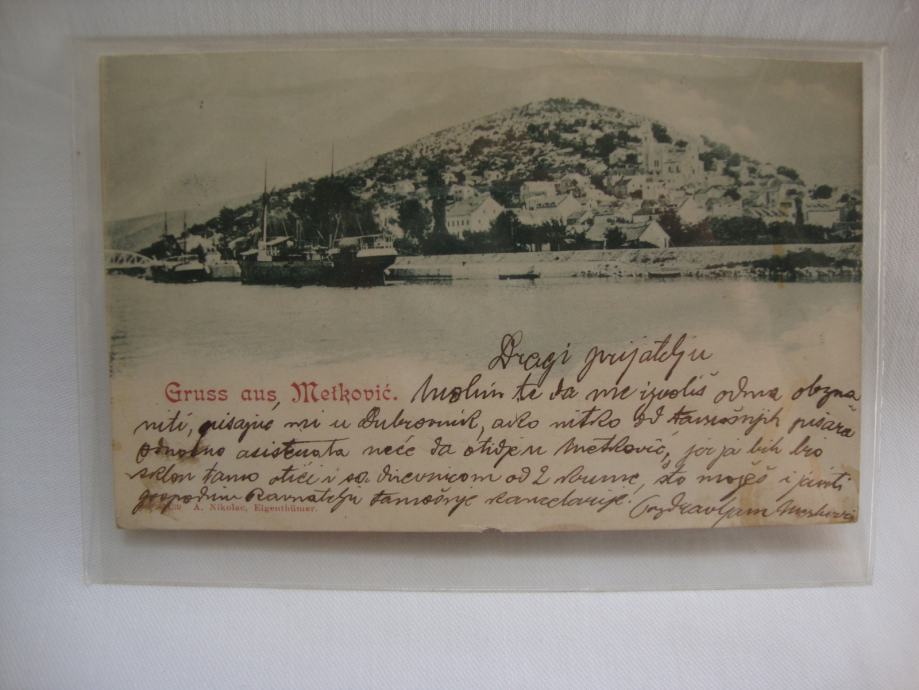 Dragi prijatelju
Gruss aus Metković. Molim te da me izvoliš odma obzna
niti, pisajuć mi u Dubrovnik, ako nitko od tamošnjih pisara
odnosno asistenata neće da otidje u Metković, jer ja bih bio
sklon tamo otići i sa dnevnicom od 2 krune, što možeš i javiti
gospodinu Ravnatelju tamošnje kancelarije. Pozdravljam
A. Nikolac, Eigenthümer.